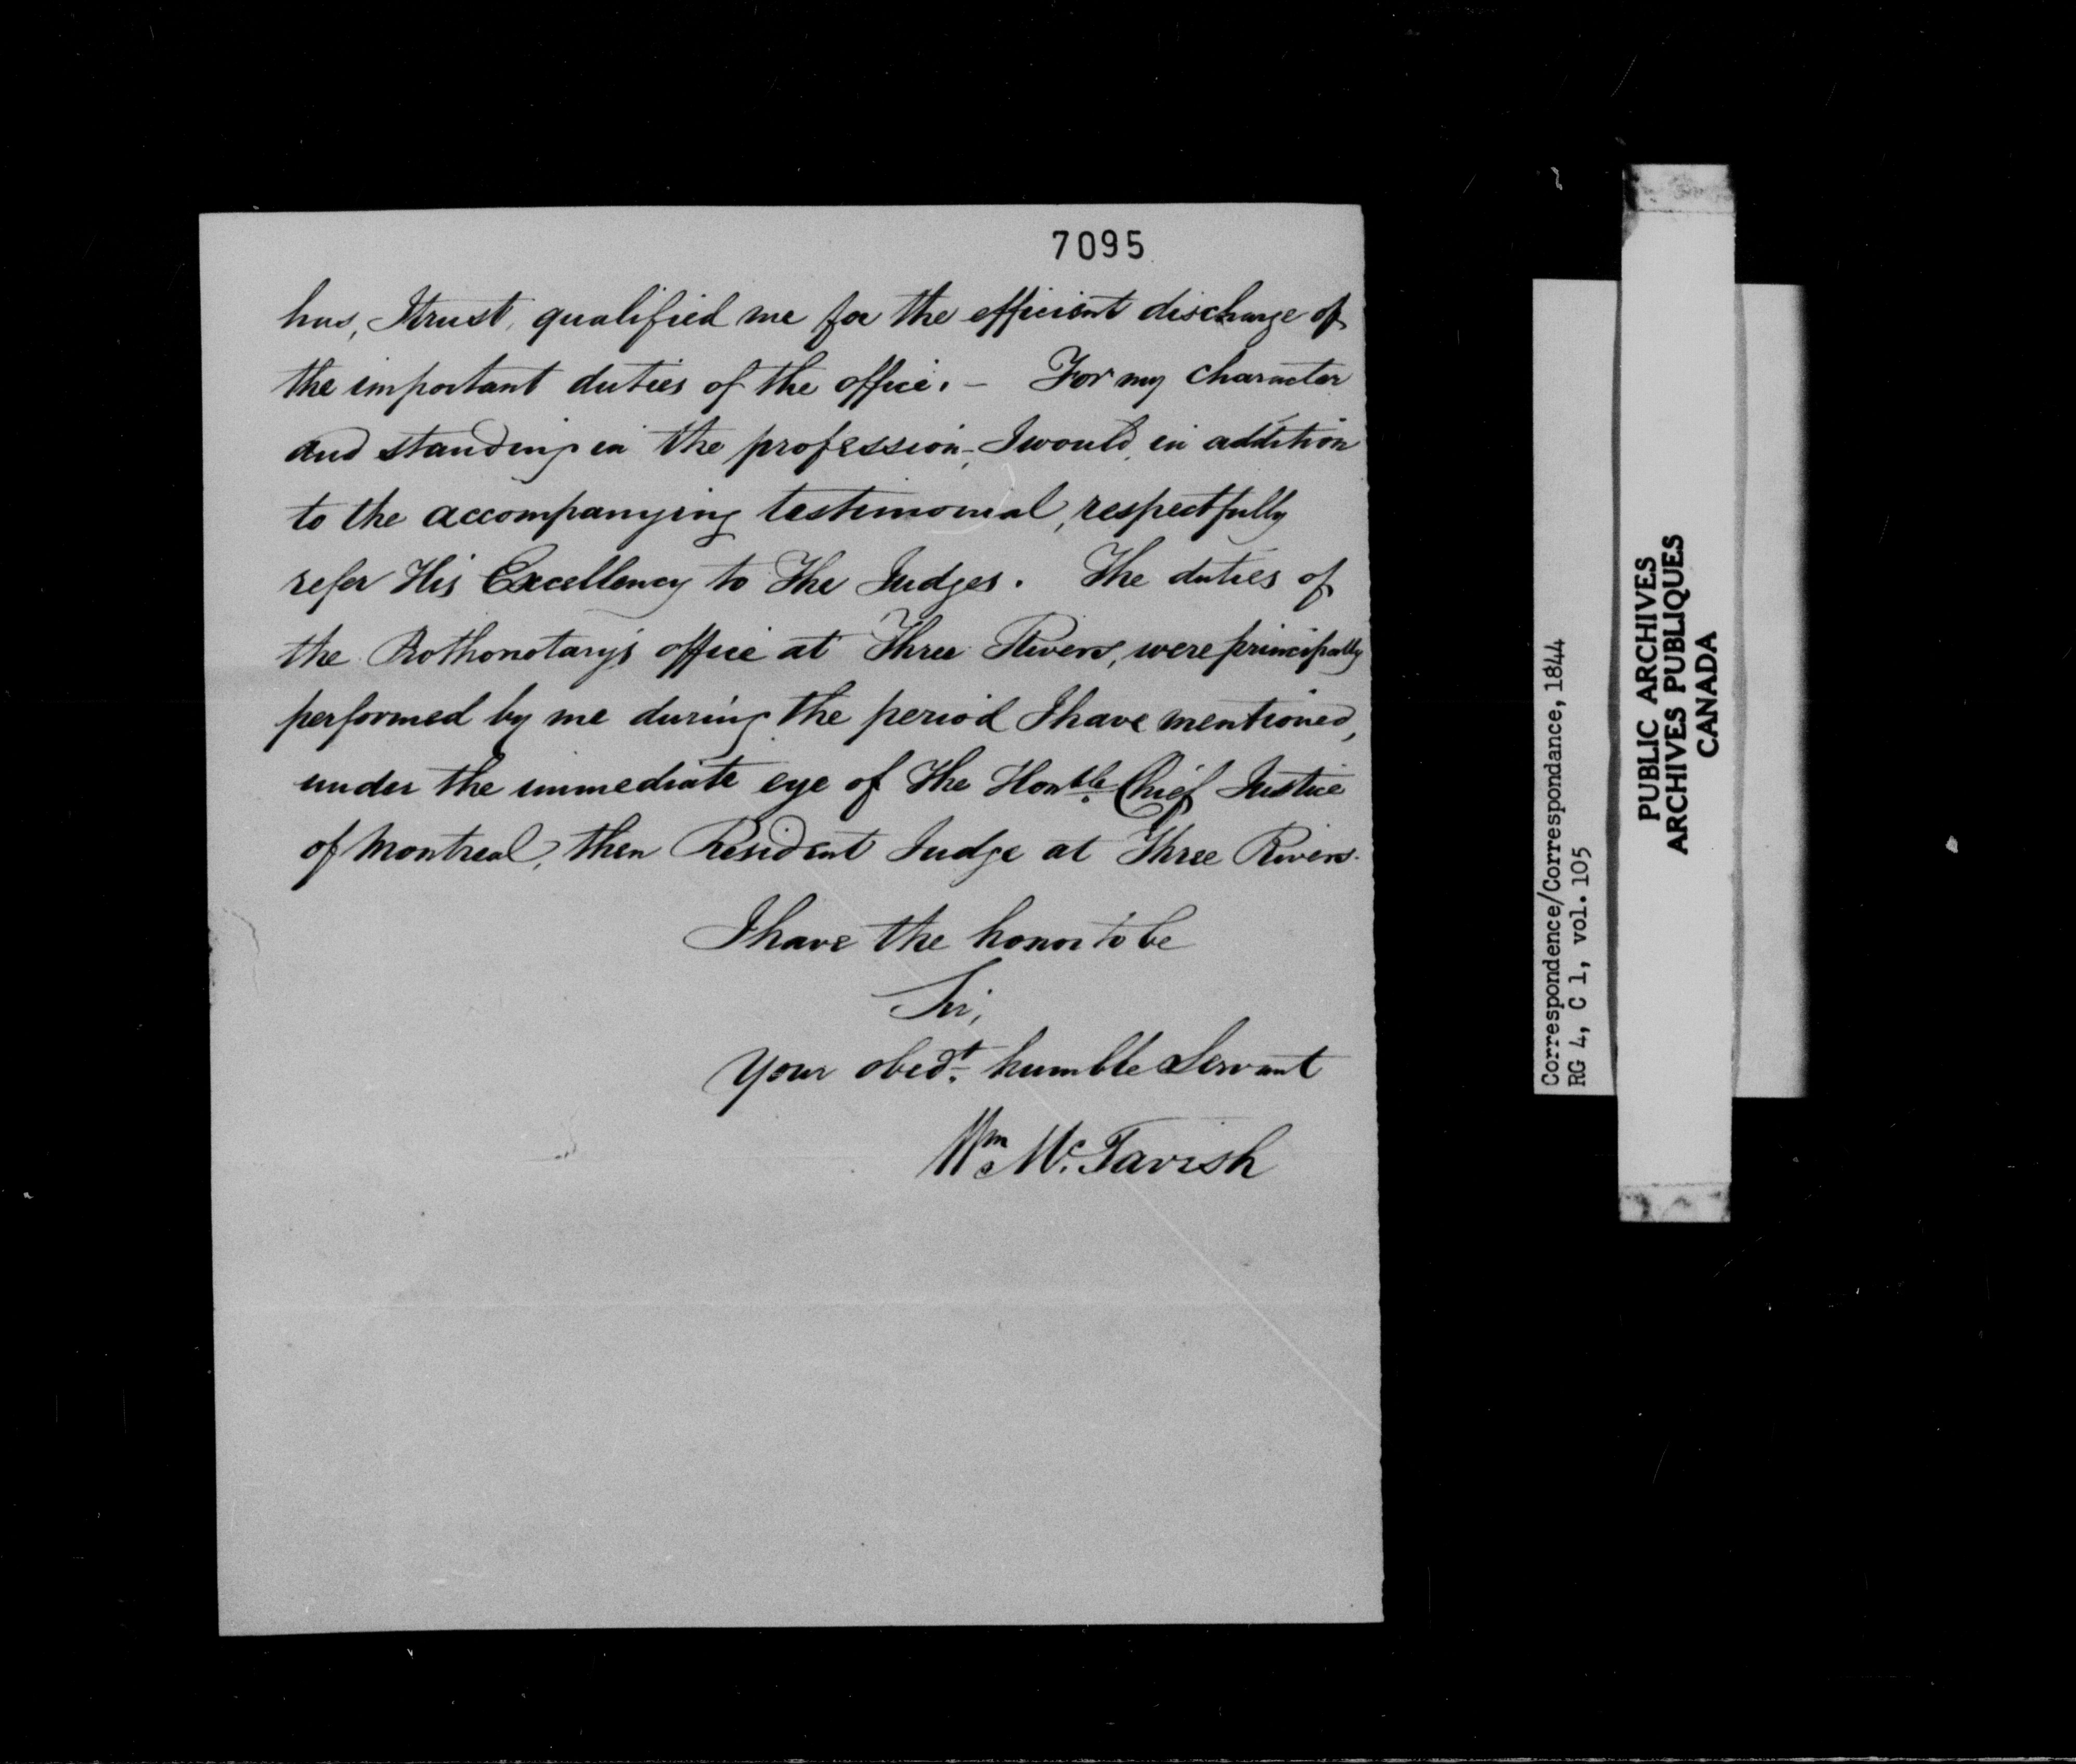 7095
has, I trust, qualified me for the efficient discharge of
the important duties of the office. – For my character
and standing in the profession, I would, in addition
to the accompanying testimonial, respectfully
refer His Excellency to The Judges. The duties of
the Prothonotary's office at Three Rivers, were principally
performed by me during the period I have mentioned,
under the immediate eye of The Honble Chief Justice
of Montreal, then Resident Judge at Three Rivers.
I have the honor to be
Sir,
Your obedt. humble Servant
Wm McTavish
Correspondence/Correspondance, 1844
RG 4, C 1, vol. 105
PUBLIC ARCHIVES
ARCHIVES PUBLIQUES
CANADA